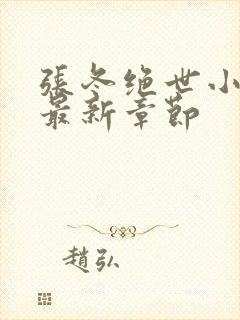 張冬绝世小
最新章節
趙弘